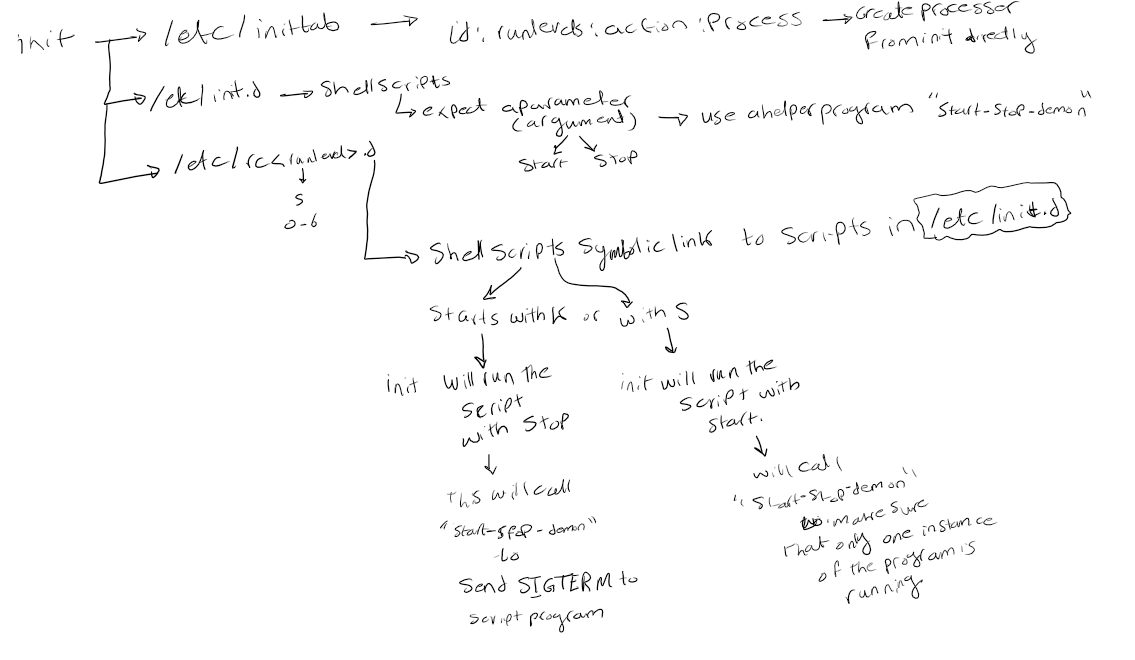 init → /etc/inittab → id: runlevels: action: Process → Create processer
from init directly
/etc/init.d → Shell scripts
↳ expect a parameter
(argument) → use a helper program "Start-Stop-demon"
Start Stop
/etc/rc<runlevel>.d
S
0-6
Shell scripts Symbolic link to scripts in /etc/init.d
Starts with K or with S
init will run the
script
with Stop
this will call
"Start-stop-demon"
to
Send SIGTERM to
script program
init will run the
script with
start.
will call
"Start-Stop-demon"
to make sure
that only one instance
of the program is
running